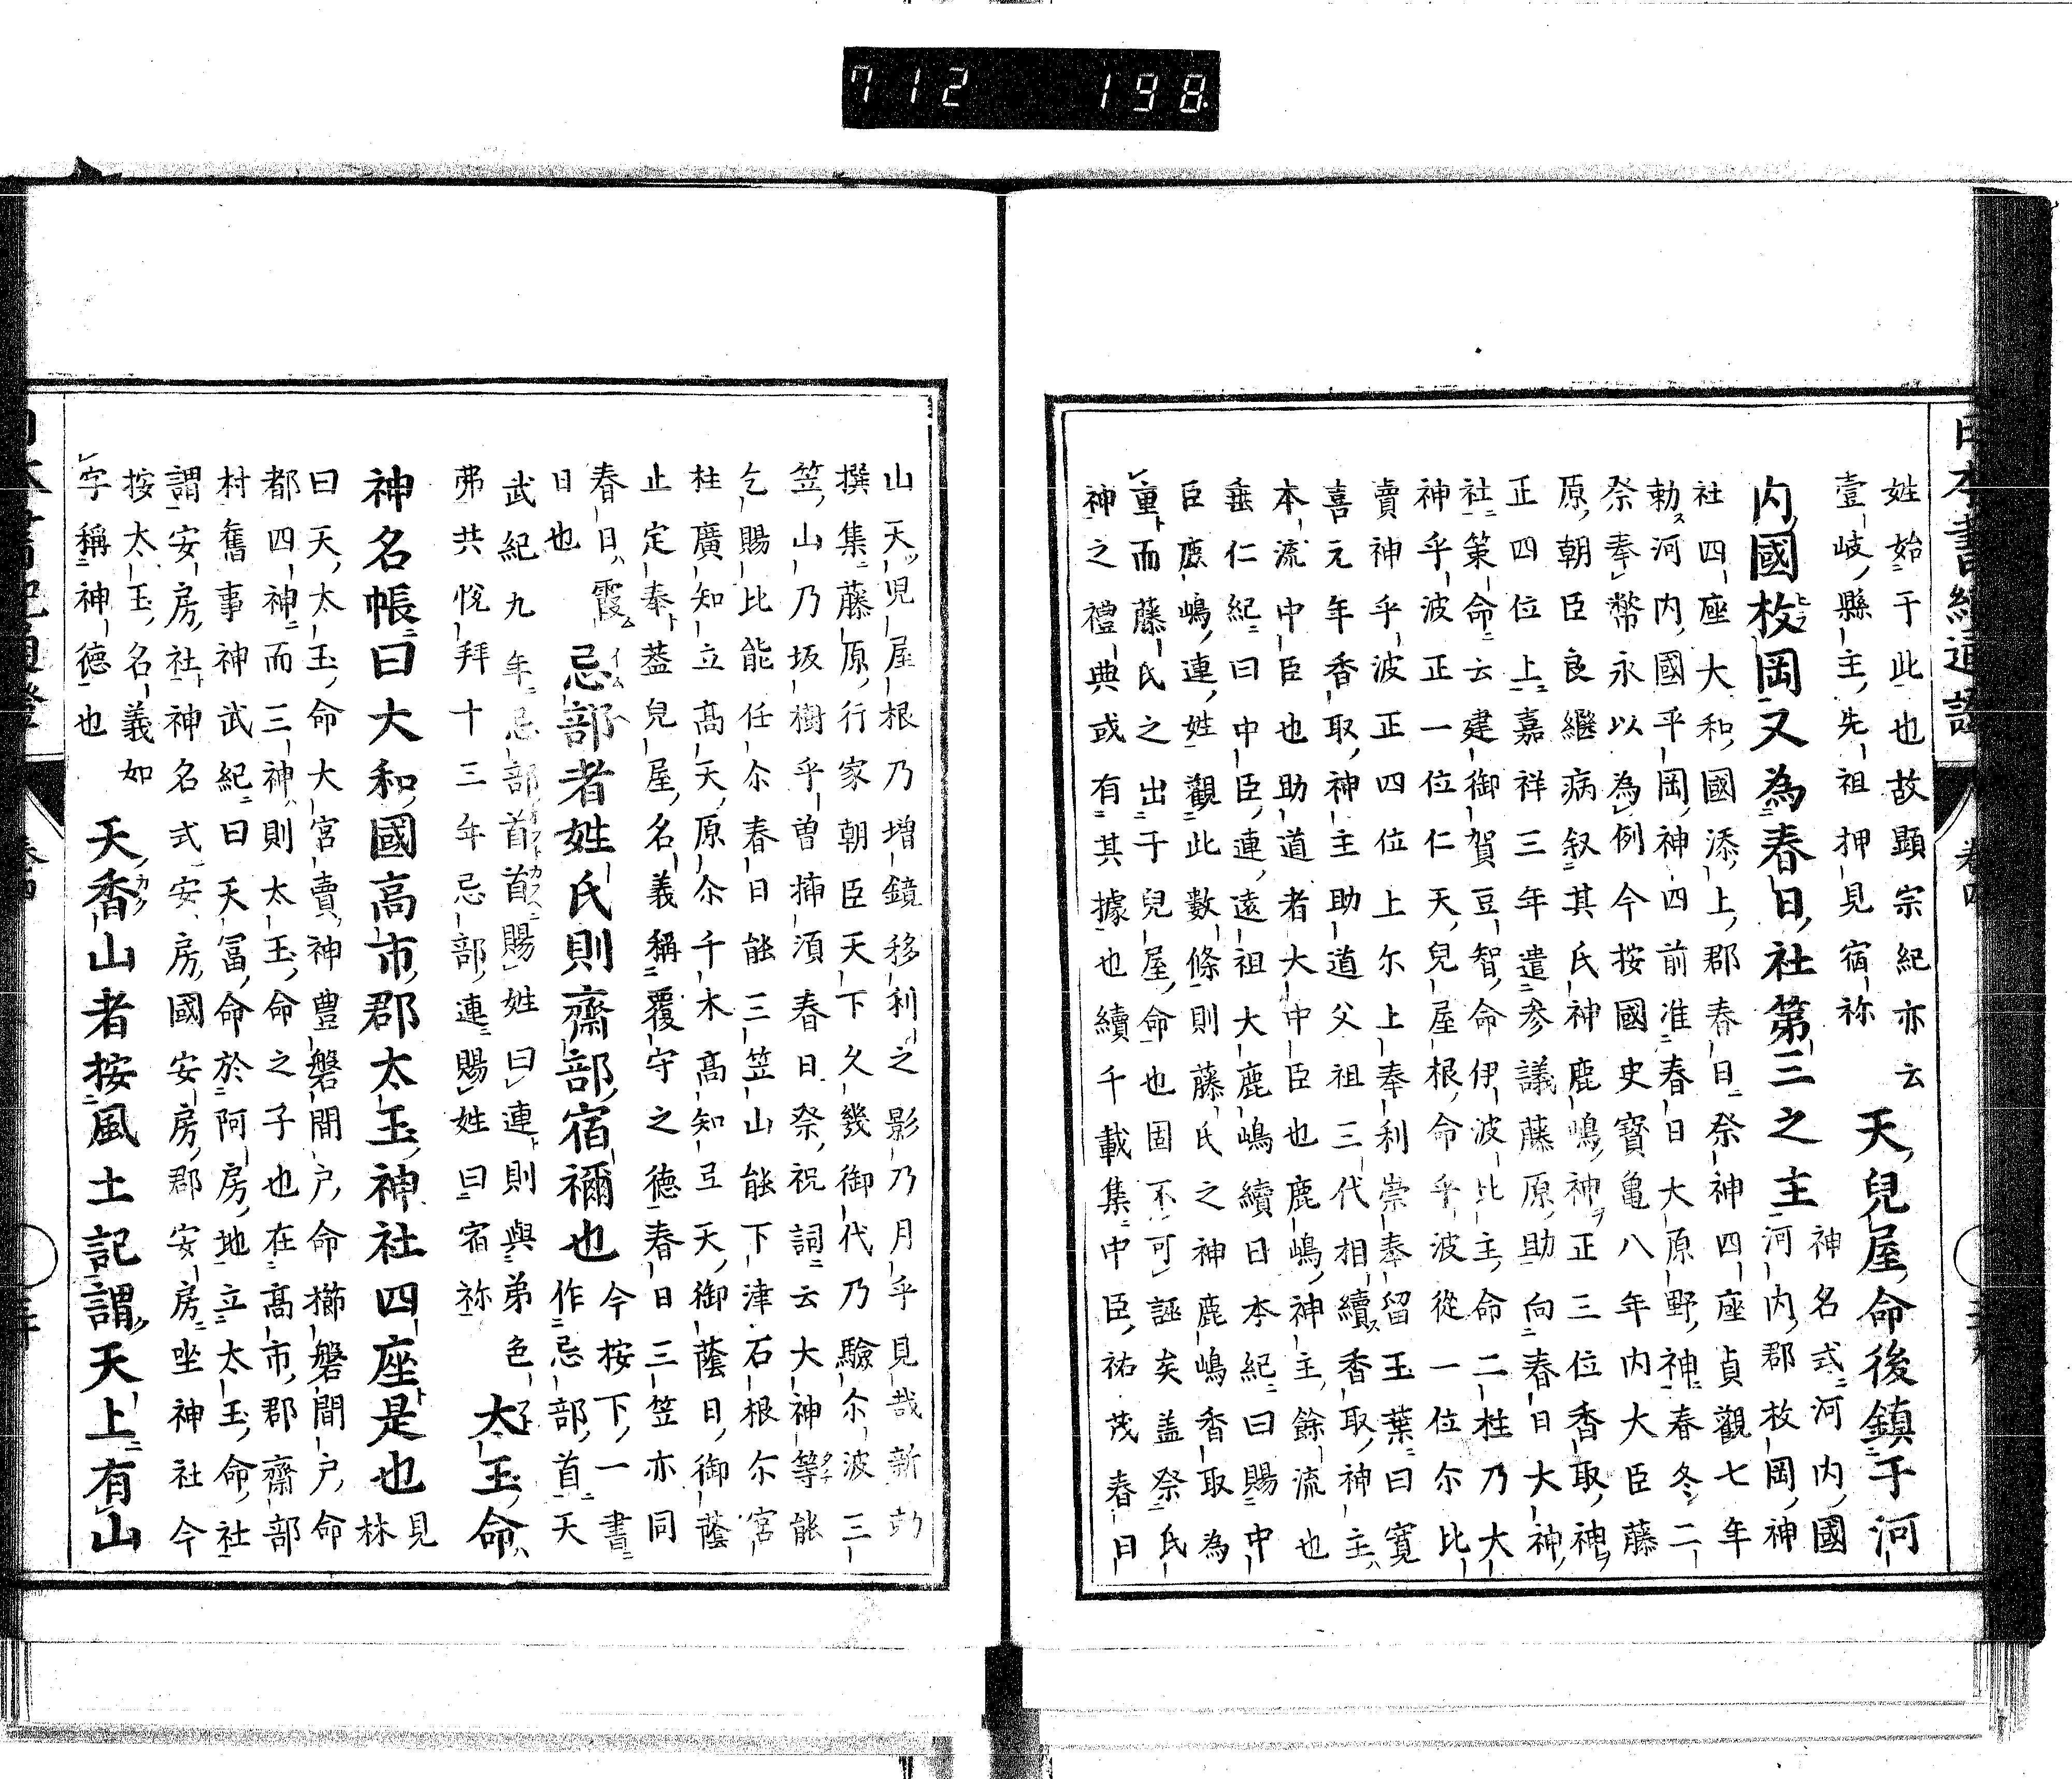 712 198
姓始于此也故顯宗紀亦云 天兒屋命後鎮于河
壹岐縣主先祖押見宿祢
内國枚岡又為春日社第三之主 神名式河内國
河内郡枚岡神
社四座大和國添上郡春日祭神四座貞觀七年
勅河内國平岡神四前准春日大原野神春冬二
祭奉幣永以為例今按國史寳亀八年内大臣藤
原朝臣良繼病叙其氏神鹿嶋神正三位香取神
正四位上嘉祥三年遣参議藤原助向春日大神
社策命云建御賀豆智命伊波比主命二柱乃大
神乎波正一位仁天兒屋根命乎波從一位尓比
賣神乎波正四位上尓上奉利崇奉留玉葉曰寛
喜元年香取神主助道父祖三代相續香取神主
本流中臣也助道者大中臣也鹿嶋神主餘流也
垂仁紀曰中臣連遠祖大鹿嶋續日本紀曰賜中
臣鹿嶋連姓觀此數條則藤氏之神鹿嶋香取為
重而藤氏之出于兒屋命也固不可誣矣盖祭氏
神之禮典或有其據也續千載集中臣祐茂春日
山天兒屋根乃増鏡移利之影乃月乎見哉新勅
撰集藤原行家朝臣天下久幾御代乃驗尓波三
笠山乃坂樹乎曽揷須春日祭祝詞云大神等能
乞賜比能任尓春日能三笠山能下津石根尓宮
柱廣知立髙天原尓千木髙知弖天御蔭日御蔭
止定奉葢兒屋名義稱覆守之德春日三笠亦同
春日霞
日也 忌部者姓氏則齋部宿禰也 今按下一書
作忌部首天
武紀九年忌部首首賜姓曰連則與弟色
弗共悅拜十三年忌部連賜姓曰宿祢 太玉命
神名帳曰大和國高市郡太玉神社四座是也 見
林
曰天太玉命大宮賣神豊磐間戶命櫛磐間戶命
都四神而三神則太玉命之子也在髙市郡齋部
村舊事神武紀曰天冨命於阿房地立太玉命社
謂安房社神名式安房國安房郡安房坐神社今
按太玉名義如
字稱神德也 天香山者按風土記謂天上有山